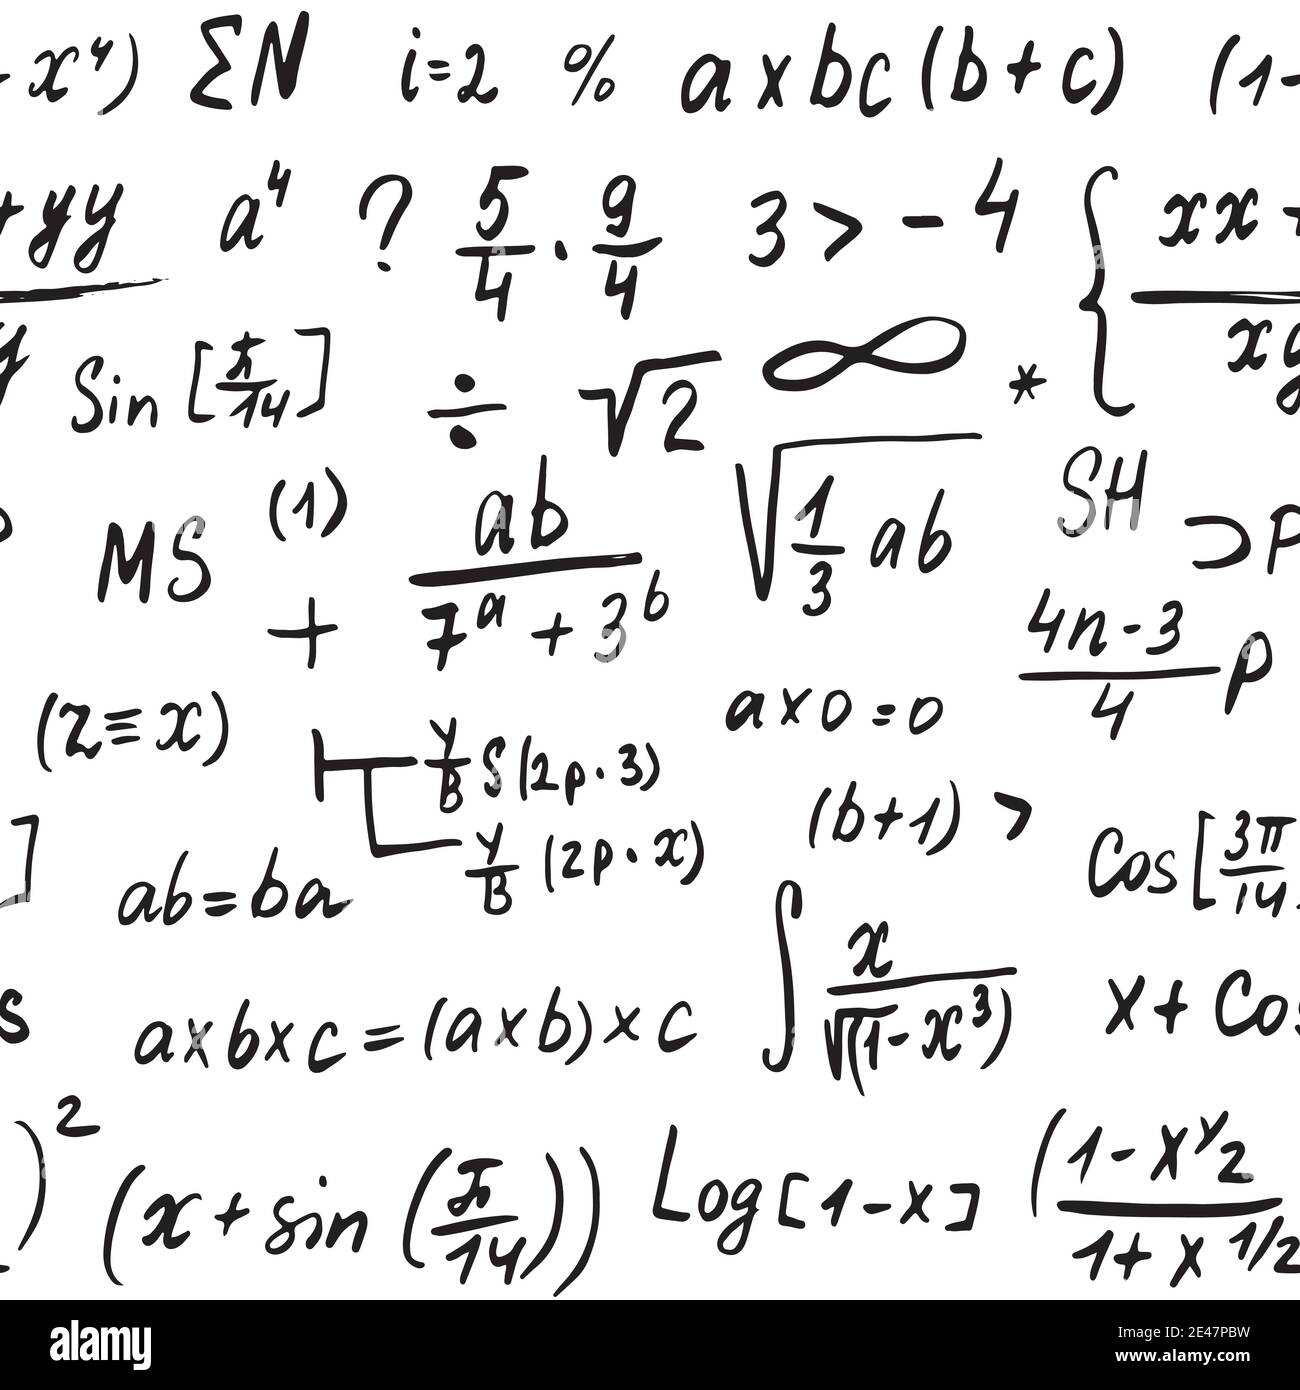 - x⁴) ΣN i=2 % a x bc (b + c) (1-
+yy a⁴ ? 5/4 · 9/4 3 > - 4 { xx +
y Sin [π/14] ÷ √2 ∞ * xy
MS (1) ab √(1/3 ab) SH ⊃P
+ 7ᵃ + 3ᵇ (4n-3)/4 P
(z ≡ x) a x 0 = 0
Y/B S (2p · 3)
] ab = ba Y/B (2p · x) (b+1) > Cos [3π/14]
s a x b x c = (a x b) x c ∫ x/√(1-x³) x + Cos
)² (x + sin (π/14)) Log [1-x] (1-X^Y2
1+X^1/2
alamy
Image ID: 2E47PBW
www.alamy.com